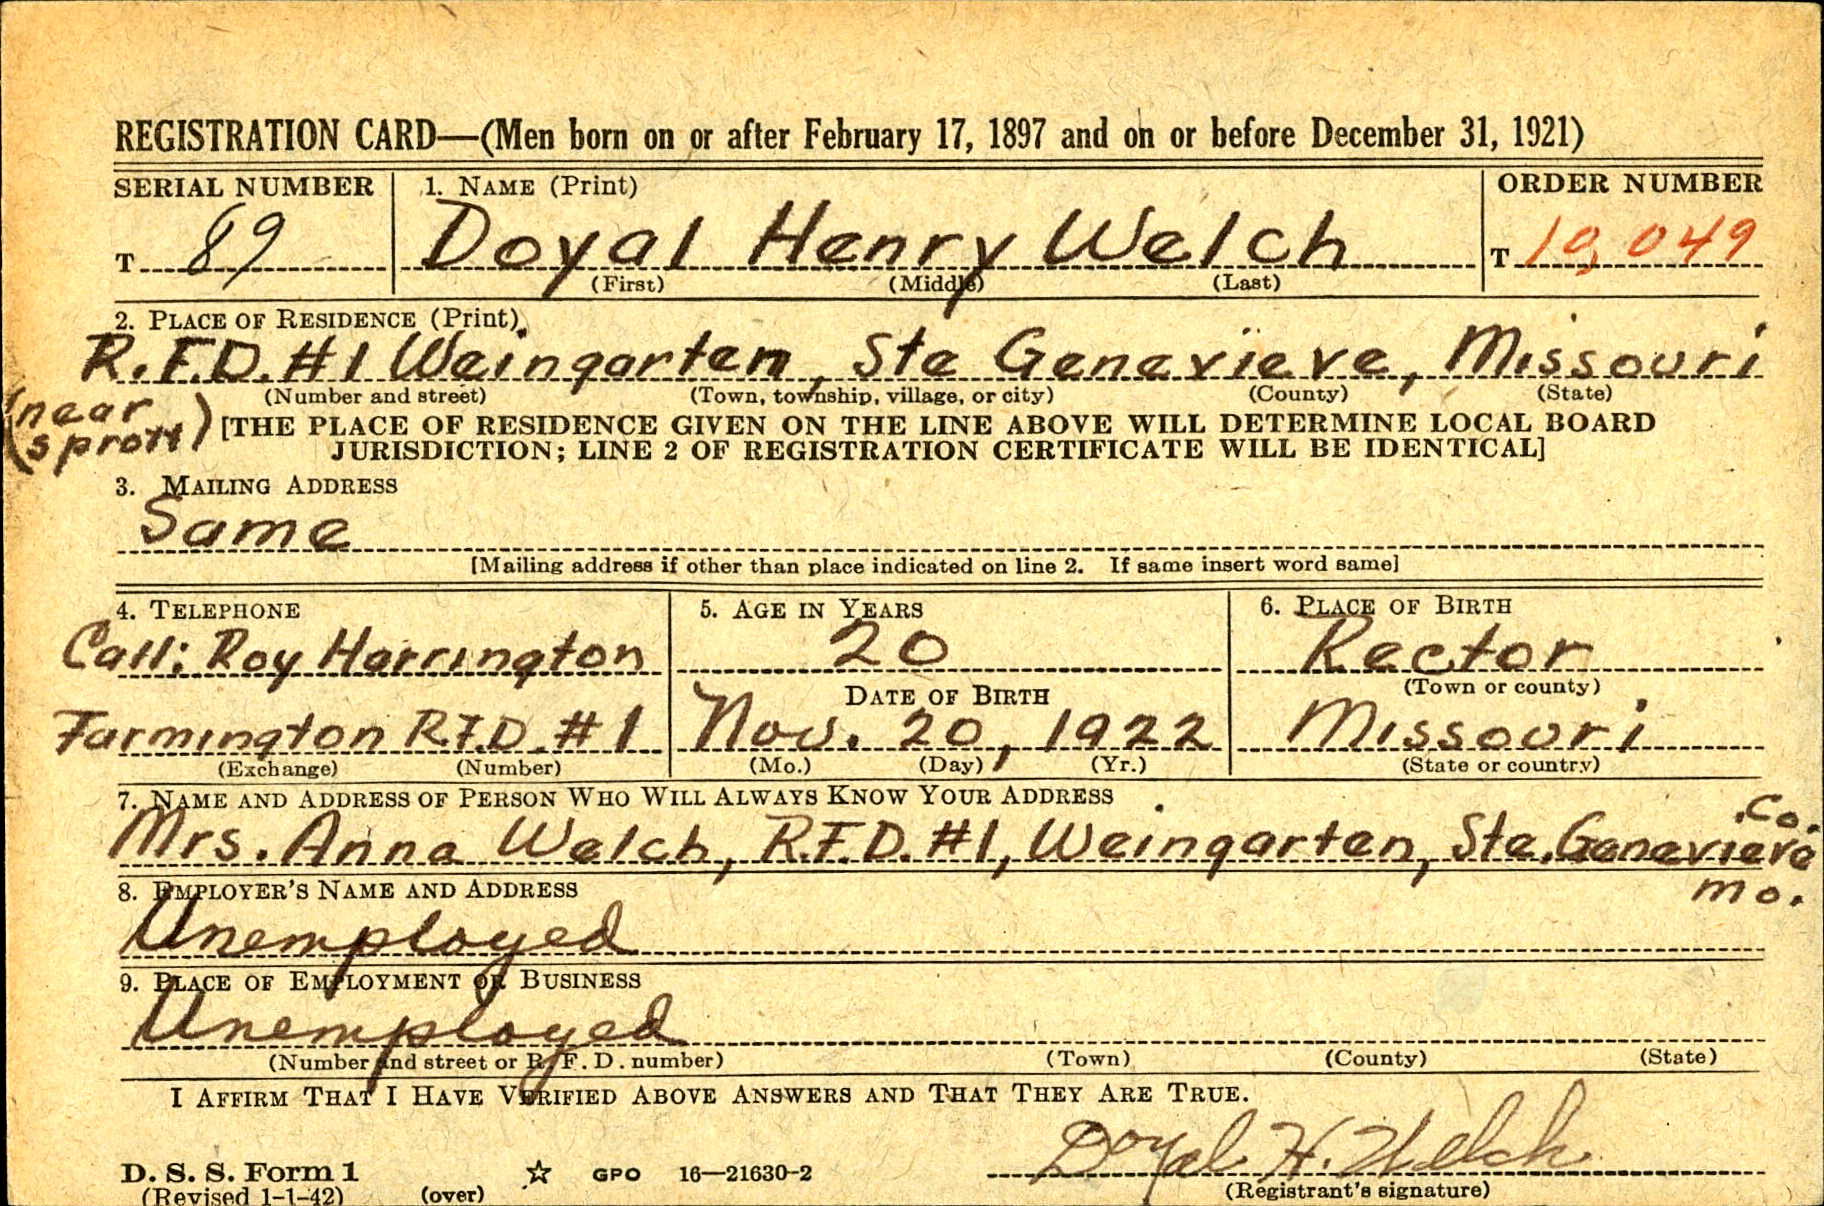 REGISTRATION CARD—(Men born on or after February 17, 1897 and on or before December 31, 1921)
SERIAL NUMBER
1. NAME (Print)
ORDER NUMBER
T 89
Doyal Henry Welch
T 10,049
(First) (Middle) (Last)
2. PLACE OF RESIDENCE (Print)
R.F.D. #1 Weingarten, Ste Genevieve, Missouri
(Number and street) (Town, township, village, or city) (County) (State)
(near
sprott)
[THE PLACE OF RESIDENCE GIVEN ON THE LINE ABOVE WILL DETERMINE LOCAL BOARD
JURISDICTION; LINE 2 OF REGISTRATION CERTIFICATE WILL BE IDENTICAL]
3. MAILING ADDRESS
Same
[Mailing address if other than place indicated on line 2. If same insert word same]
4. TELEPHONE
Call: Roy Harrington
Farmington R.F.D. #1
(Exchange) (Number)
5. AGE IN YEARS
20
DATE OF BIRTH
Nov. 20, 1922
(Mo.) (Day) (Yr.)
6. PLACE OF BIRTH
Rector
(Town or county)
Missouri
(State or country)
7. NAME AND ADDRESS OF PERSON WHO WILL ALWAYS KNOW YOUR ADDRESS
Mrs. Anna Welch, R.F.D. #1, Weingarten, Ste. Genevieve Co.
Mo.
8. EMPLOYER'S NAME AND ADDRESS
Unemployed
9. PLACE OF EMPLOYMENT OR BUSINESS
Unemployed
(Number and street or R. F. D. number) (Town) (County) (State)
I AFFIRM THAT I HAVE VERIFIED ABOVE ANSWERS AND THAT THEY ARE TRUE.
Doyal H. Welch
D. S. S. Form 1
(Revised 1-1-42) (over) GPO 16—21630-2
(Registrant's signature)